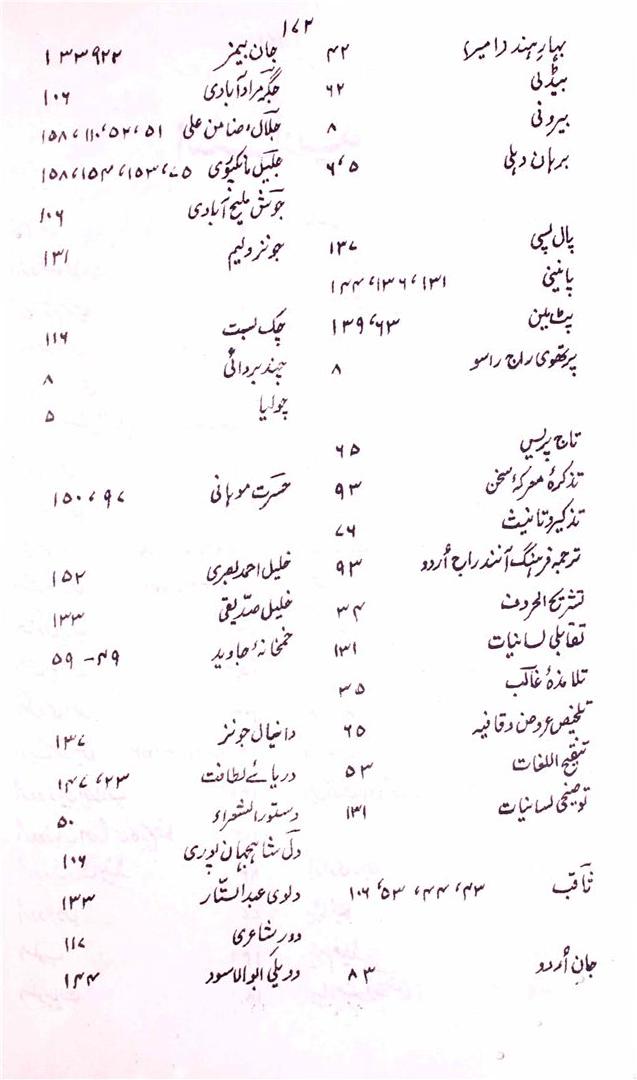 ۱۷۲
بہارِ ہند (امیر) ۴۲
بیڈلی ۶۲
بیرونی ۸
برہان دہلی ۵، ۶
پال پسی ۱۳۷
پانینی ۱۳۱، ۱۳۶، ۱۴۴
پٹ مین ۶۳، ۱۳۹
پرتھوی راج راسو ۸
تاج پریس ۶۵
تذکرۂ معرکۂ سخن ۹۳
تذکیر و تانیث ۷۶
ترجمہ فرہنگ آنند راج اُردو ۹۳
تشریح الحروف ۳۴
تقابلی لسانیات ۱۳۱
تلامذۂ غالب ۳۵
تلخیص عروض و قافیہ ۶۵
تنقیح اللغات ۵۳
توضیحی لسانیات ۱۳۱
ثاقب ۴۳، ۴۴، ۵۳، ۱۰۶
جان اُردو ۸۳
جان بیمز ۱۳۳۹۲۲
جگر مرادآبادی ۱۰۶
جلال، ضامن علی ۵۱، ۵۲، ۱۱۰، ۱۵۸
جلیل مانکپوری ۷۵، ۱۵۳، ۱۵۴، ۱۵۸
جوش ملیح آبادی ۱۰۶
جونز ولیم ۱۳۱
چک بست ۱۱۶
چند بردائی ۸
چولیا ۵
حسرت موہانی ۹۷، ۱۵۰
خلیل احمد بصری ۱۵۲
خلیل صدّیقی ۱۳۳
خمخانۂ جاوید ۴۹ – ۵۹
دانیال جونز ۱۳۷
دریائے لطافت ۲۳، ۱۴۷
دستور الشعراء ۵۰
دل شاہجہان پوری ۱۰۶
دلوی عبدالستّار ۱۳۳
دور شاعری ۱۱۷
دویلی ابوالاسود ۱۴۴